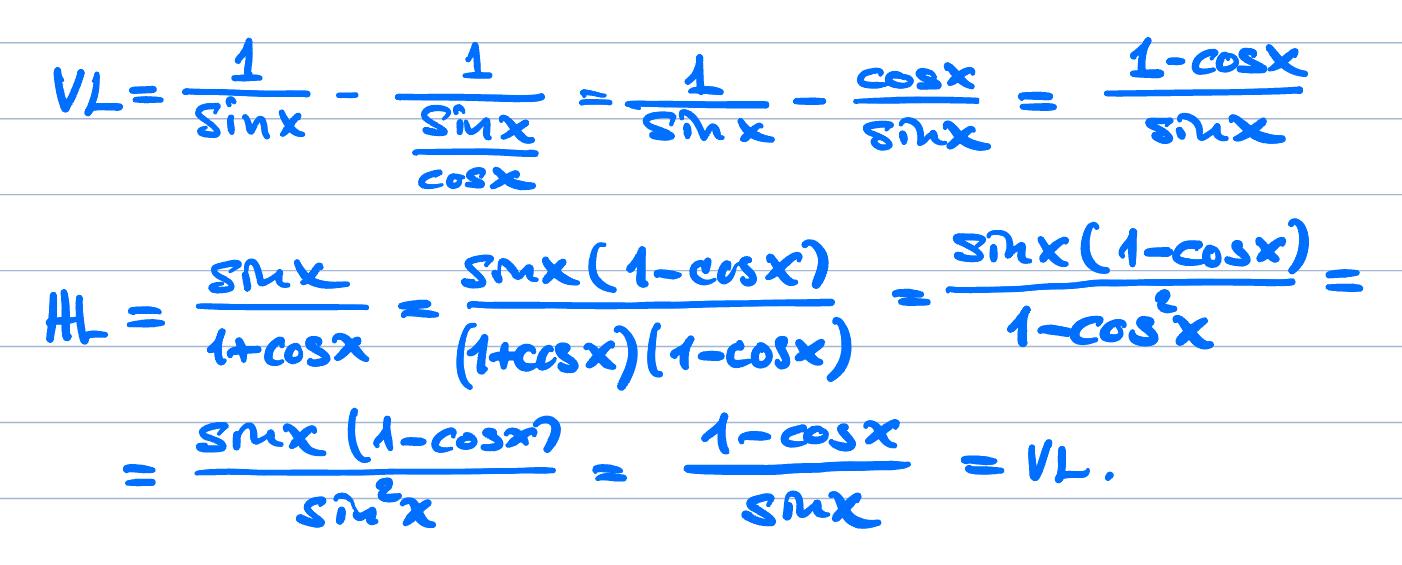 VL = \frac{1}{\sin x} - \frac{1}{\frac{\sin x}{\cos x}} = \frac{1}{\sin x} - \frac{\cos x}{\sin x} = \frac{1-\cos x}{\sin x}
HL = \frac{\sin x}{1+\cos x} = \frac{\sin x(1-\cos x)}{(1+\cos x)(1-\cos x)} = \frac{\sin x(1-\cos x)}{1-\cos^2 x} =
= \frac{\sin x(1-\cos x)}{\sin^2 x} = \frac{1-\cos x}{\sin x} = VL.